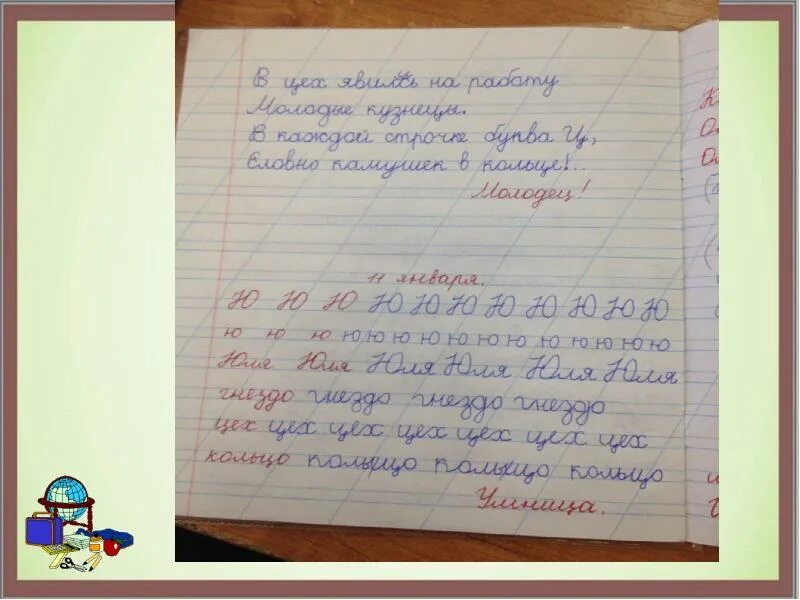 В цех явилсь на работу
Молодые кузнецы.
В каждой строчке буква Ц,
Словно камушек в кольце!..
Молодец!
11 января.
Ю Ю Ю Ю Ю Ю Ю Ю Ю Ю Ю
ю ю ю ю ю ю ю ю ю ю ю ю ю ю
Юля Юля Юля Юля Юля Юля
гнездо гнездо гнездо гнездо
цех цех цех цех цех цех цех
кольцо кольцо кольцо кольцо
Умница.